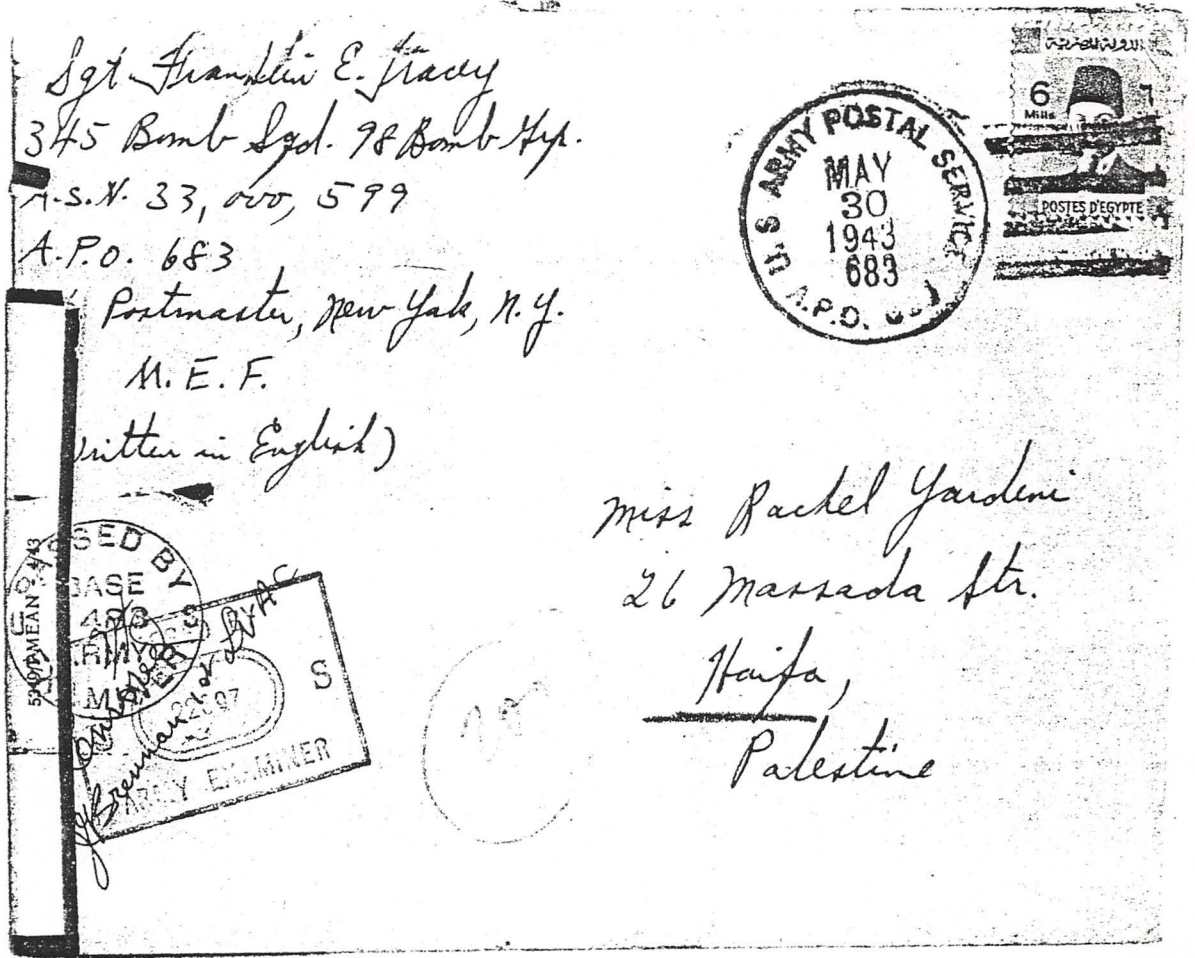 Sgt Franklin E. Tracey
345 Bomb Sqd. 98 Bomb Grp.
A.S.N. 33,000,599
A.P.O. 683
Postmaster, New York, N.Y.
M.E.F.
Written in English)
U.S ARMY POSTAL SERVICE
MAY
30
1943
683
A.P.O.
الدولة المصرية
6
Mills
٦
POSTES D'EGYPTE
Miss Rachel Yardeni
26 Massada Str.
Haifa,
Palestine
SED BY
BASE
ARMY
S
ARMY EXAMINER